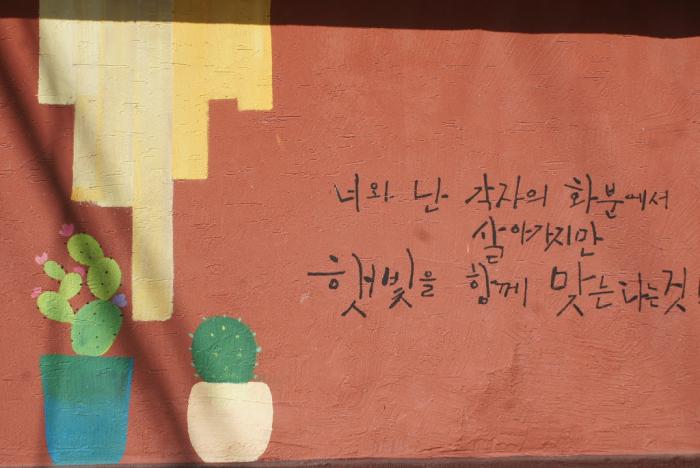 너와 난 각자의 화분에서
살아가지만
햇빛을 함께 맞는다는것!